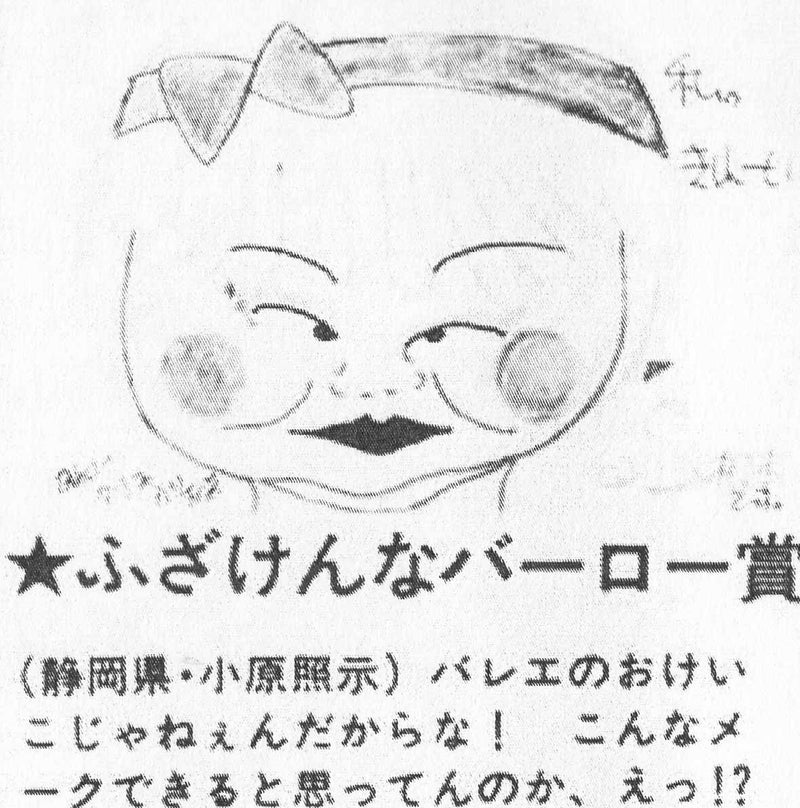 私の
★ふざけんなバーロー賞
(静岡県・小原照示) バレエのおけい
こじゃねぇんだからな! こんなメ
ークできると思ってんのか、えっ!?